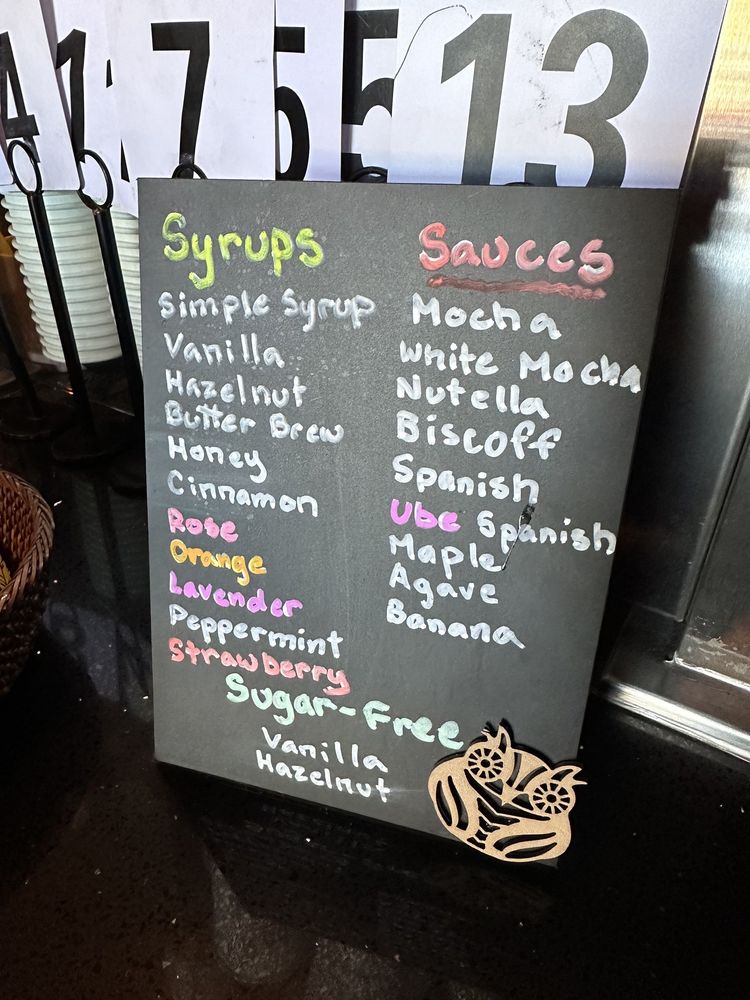 4
1
7
5
5
13
Syrups
Simple Syrup
Vanilla
Hazelnut
Butter Brew
Honey
Cinnamon
Rose
Orange
Lavender
Peppermint
Strawberry
Sauces
Mocha
White Mocha
Nutella
Biscoff
Spanish
Ube Spanish
Maple
Agave
Banana
Sugar-Free
Vanilla
Hazelnut